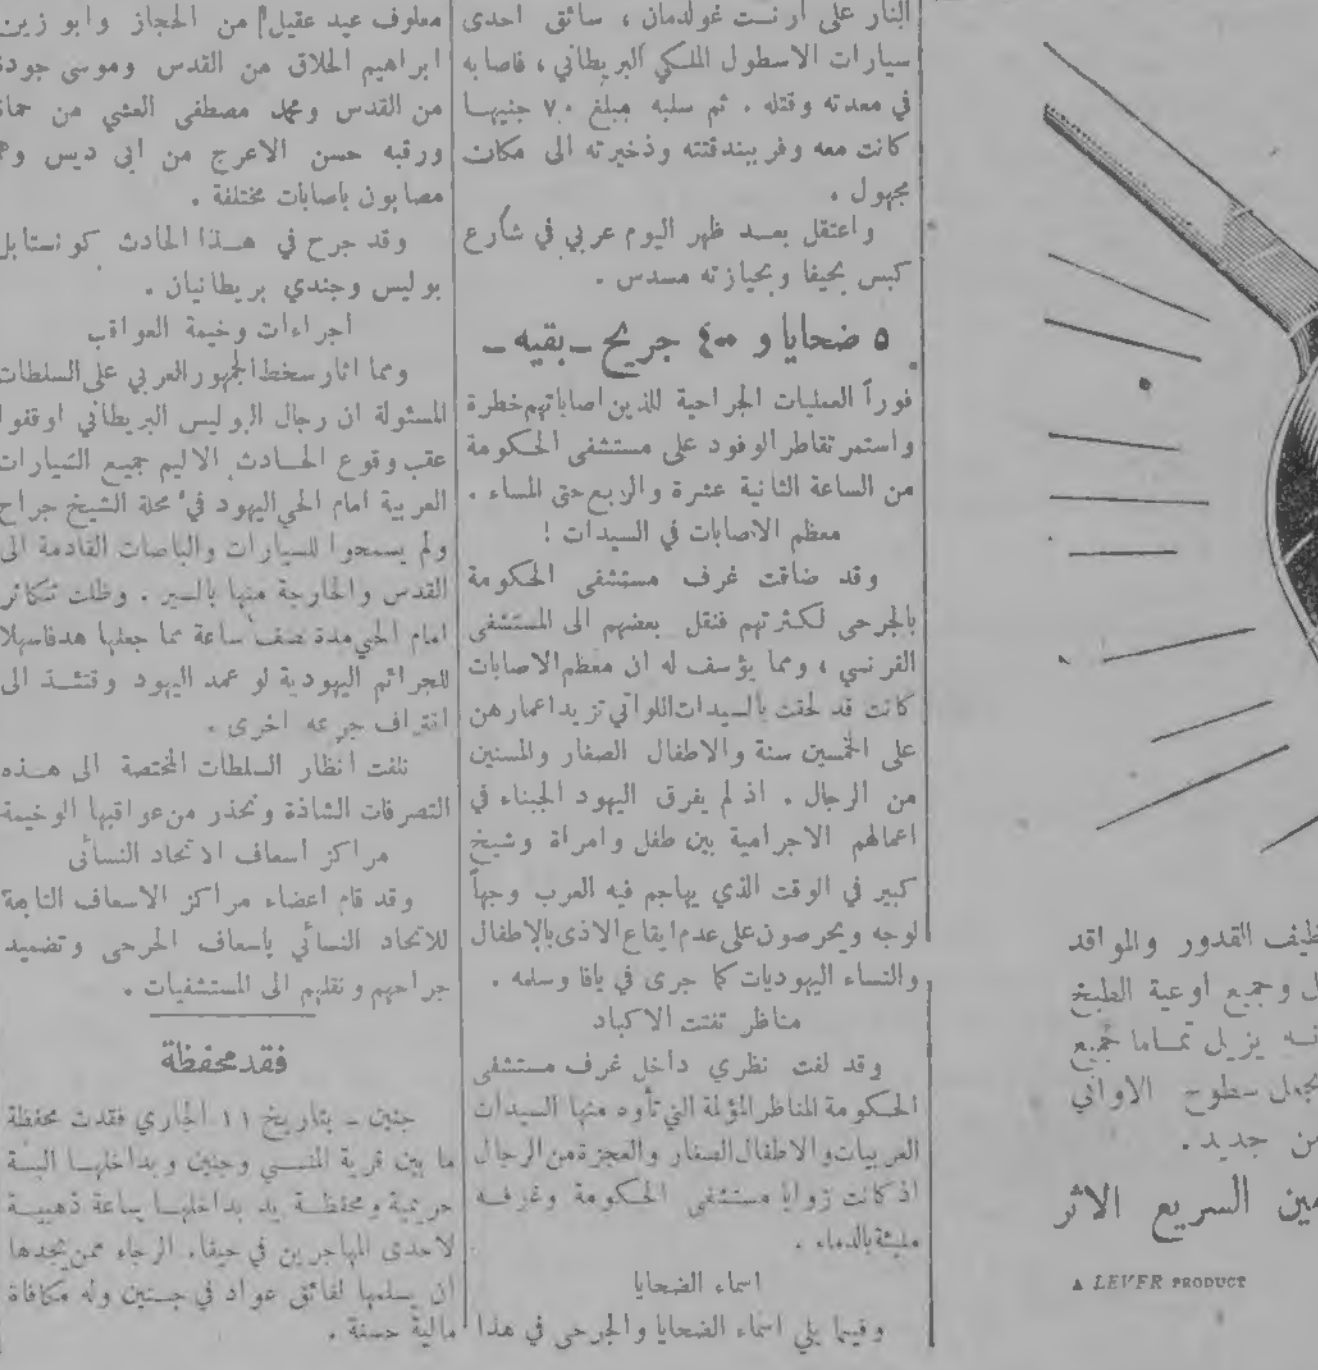 النار على ارنست غولدمان ، سائق احدى
سيارات الاسطول الملكي البريطاني ، فاصابه
في معدته وقتله . ثم سلبه مبلغ ٧٠ جنيها
كانت معه وفر ببندقتته وذخيرته الى مكان
مجهول .
واعتقل بعد ظهر اليوم عربي في شارع
كبس بحيفا وبحيازته مسدس .
٥ ضحايا و ٤٠٠ جريح ـ بقيه ـ
فوراً العمليات الجراحية للذين اصاباتهم خطرة
واستمر تقاطر الوفود على مستشفى الحكومة
من الساعة الثانية عشرة والربع حتى المساء .
معظم الاصابات في السيدات !
وقد ضاقت غرف مستشفى الحكومة
بالجرحى لكثرتهم فنقل بعضهم الى المستشفى
الفرنسي ، ومما يؤسف له ان معظم الاصابات
كانت قد لحقت بالسيدات اللواتي تزيد اعمارهن
على الخمسين سنة والاطفال الصغار والمسنين
من الرجال . اذ لم يفرق اليهود الجبناء في
اعمالهم الاجرامية بين طفل وامراة وشيخ
كبير في الوقت الذي يهاجم فيه العرب وجهاً
لوجه ويحرصون على عدم ايقاع الاذى بالاطفال
والنساء اليهوديات كما جرى في يافا وسلمه .
مناظر تفتت الاكباد
وقد لفت نظري داخل غرف مستشفى
الحكومة المناظر المؤلمة التي تأوه منها السيدات
العربيات والاطفال الصغار والعجزة من الرجال
اذ كانت زوايا مستشفى الحكومة وغرفه
مليئة بالدماء .
اسماء الضحايا
وفيما يلي اسماء الضحايا والجرحى في هذا
معلوف عيد عقيل من الحجاز وابو زين
ابراهيم الحلاق من القدس وموسى جودة
من القدس ومحمد مصطفى العشي من حماة
ورقبه حسن الاعرج من ابي ديس
مصابون باصابات مختلفة .
وقد جرح في هذا الحادث كونستابل
بوليس وجندي بريطانيان .
اجراءات وخيمة العواقب
ومما اثار سخط الجمهور العربي على السلطات
المسئولة ان رجال البوليس البريطاني اوقفوا
عقب وقوع الحادث الاليم جميع السيارات
العربية امام الحي اليهود في محلة الشيخ جراح
ولم يسمحوا للسيارات والباصات القادمة الى
القدس والخارجة منها بالسير . وظلت تتكاثر
امام الحي مدة نصف ساعة مما جعلها هدفا سهلا
للجرائم اليهودية لو عمد اليهود وقتئذ الى
اقتراف جريمه اخرى .
نلفت انظار السلطات المختصة الى هذه
التصرفات الشاذة ونحذر من عواقبها الوخيمة
مراكز اسعاف الاتحاد النسائي
وقد قام اعضاء مراكز الاسعاف التابعة
للاتحاد النسائي باسعاف الجرحى وتضميد
جراحهم ونقلهم الى المستشفيات .
فقد محفظة
جنين ـ بتاريخ ١١ الجاري فقدت محفظة
ما بين قرية المنسي وجنين وبداخلها البسة
حريمية ومحفظة يد بداخلها ساعة ذهبية
لاحدى المهاجرين في حيفا. الرجاء ممن يجدها
ان يسلمها لفائق عواد في جنين وله مكافاة
مالية حسنة .
القدور والمواقد
وجميع اوعية الطبخ
يزيل تماما جميع
سطوح الاواني
من جديد .
السريع الاثر
A LEVER PRODUCT